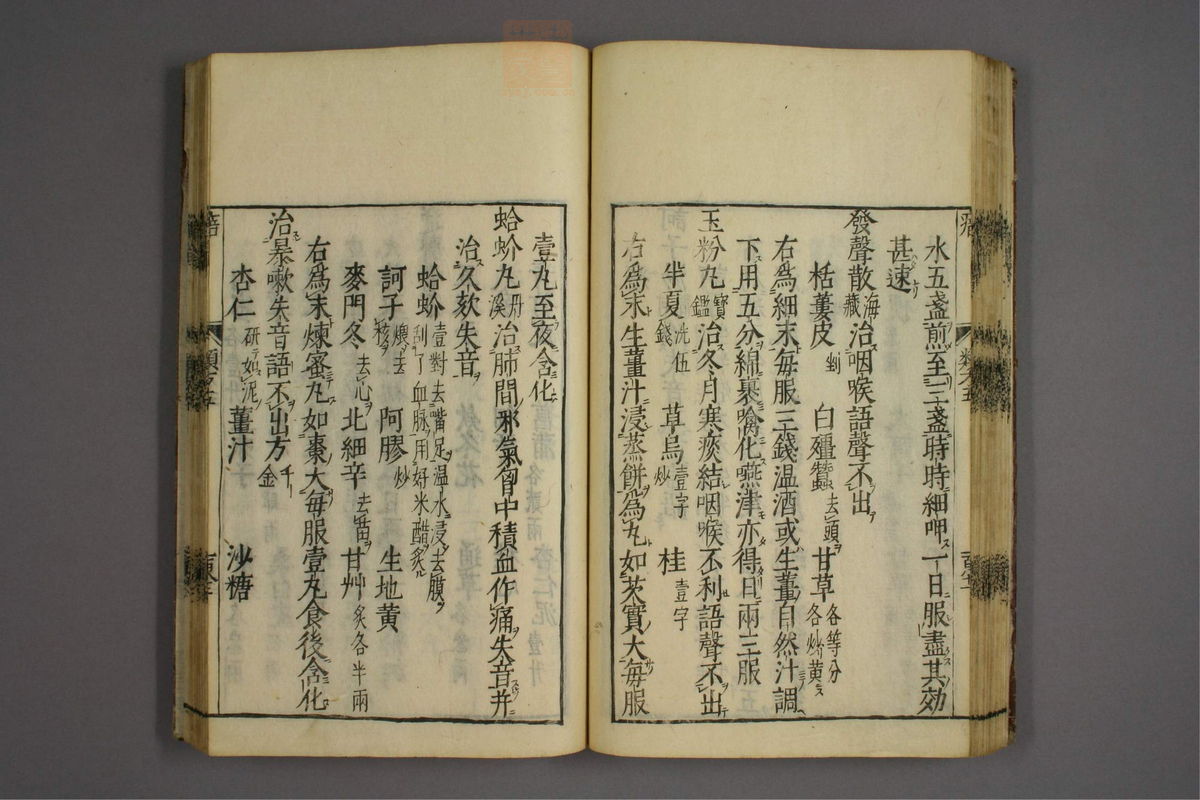 水五盞煎至二三盞時時細呷一日服盡其効
甚速
發聲散海藏治咽喉語聲不出
栝蔞皮剉 白殭蠶去頭 甘草各等分各炒黄
右爲細末毎服三錢温酒或生薑自然汁調
下用五分綿裹噙化嚥津亦得日兩三服
玉粉丸寳鑑治冬月寒痰結咽喉不利語聲不出
半夏洗伍錢 草烏壹字炒 桂壹字
右爲末生薑汁浸蒸餅爲丸如芡實大毎服
壹丸至夜含化
蛤蚧丸丹溪治肺間邪氣胷中積血作痛失音并
治久欬失音
蛤蚧壹對去嘴足温水浸去膜刮了血脉用好米醋炙
訶子煨去核 阿膠炒 生地黄
麥門冬去心 北細辛去苗 甘艸炙各半兩
右爲末煉蜜丸如棗大毎服壹丸食後含化
治暴嗽失音語不出方千金
杏仁研如泥 薑汁 沙糖